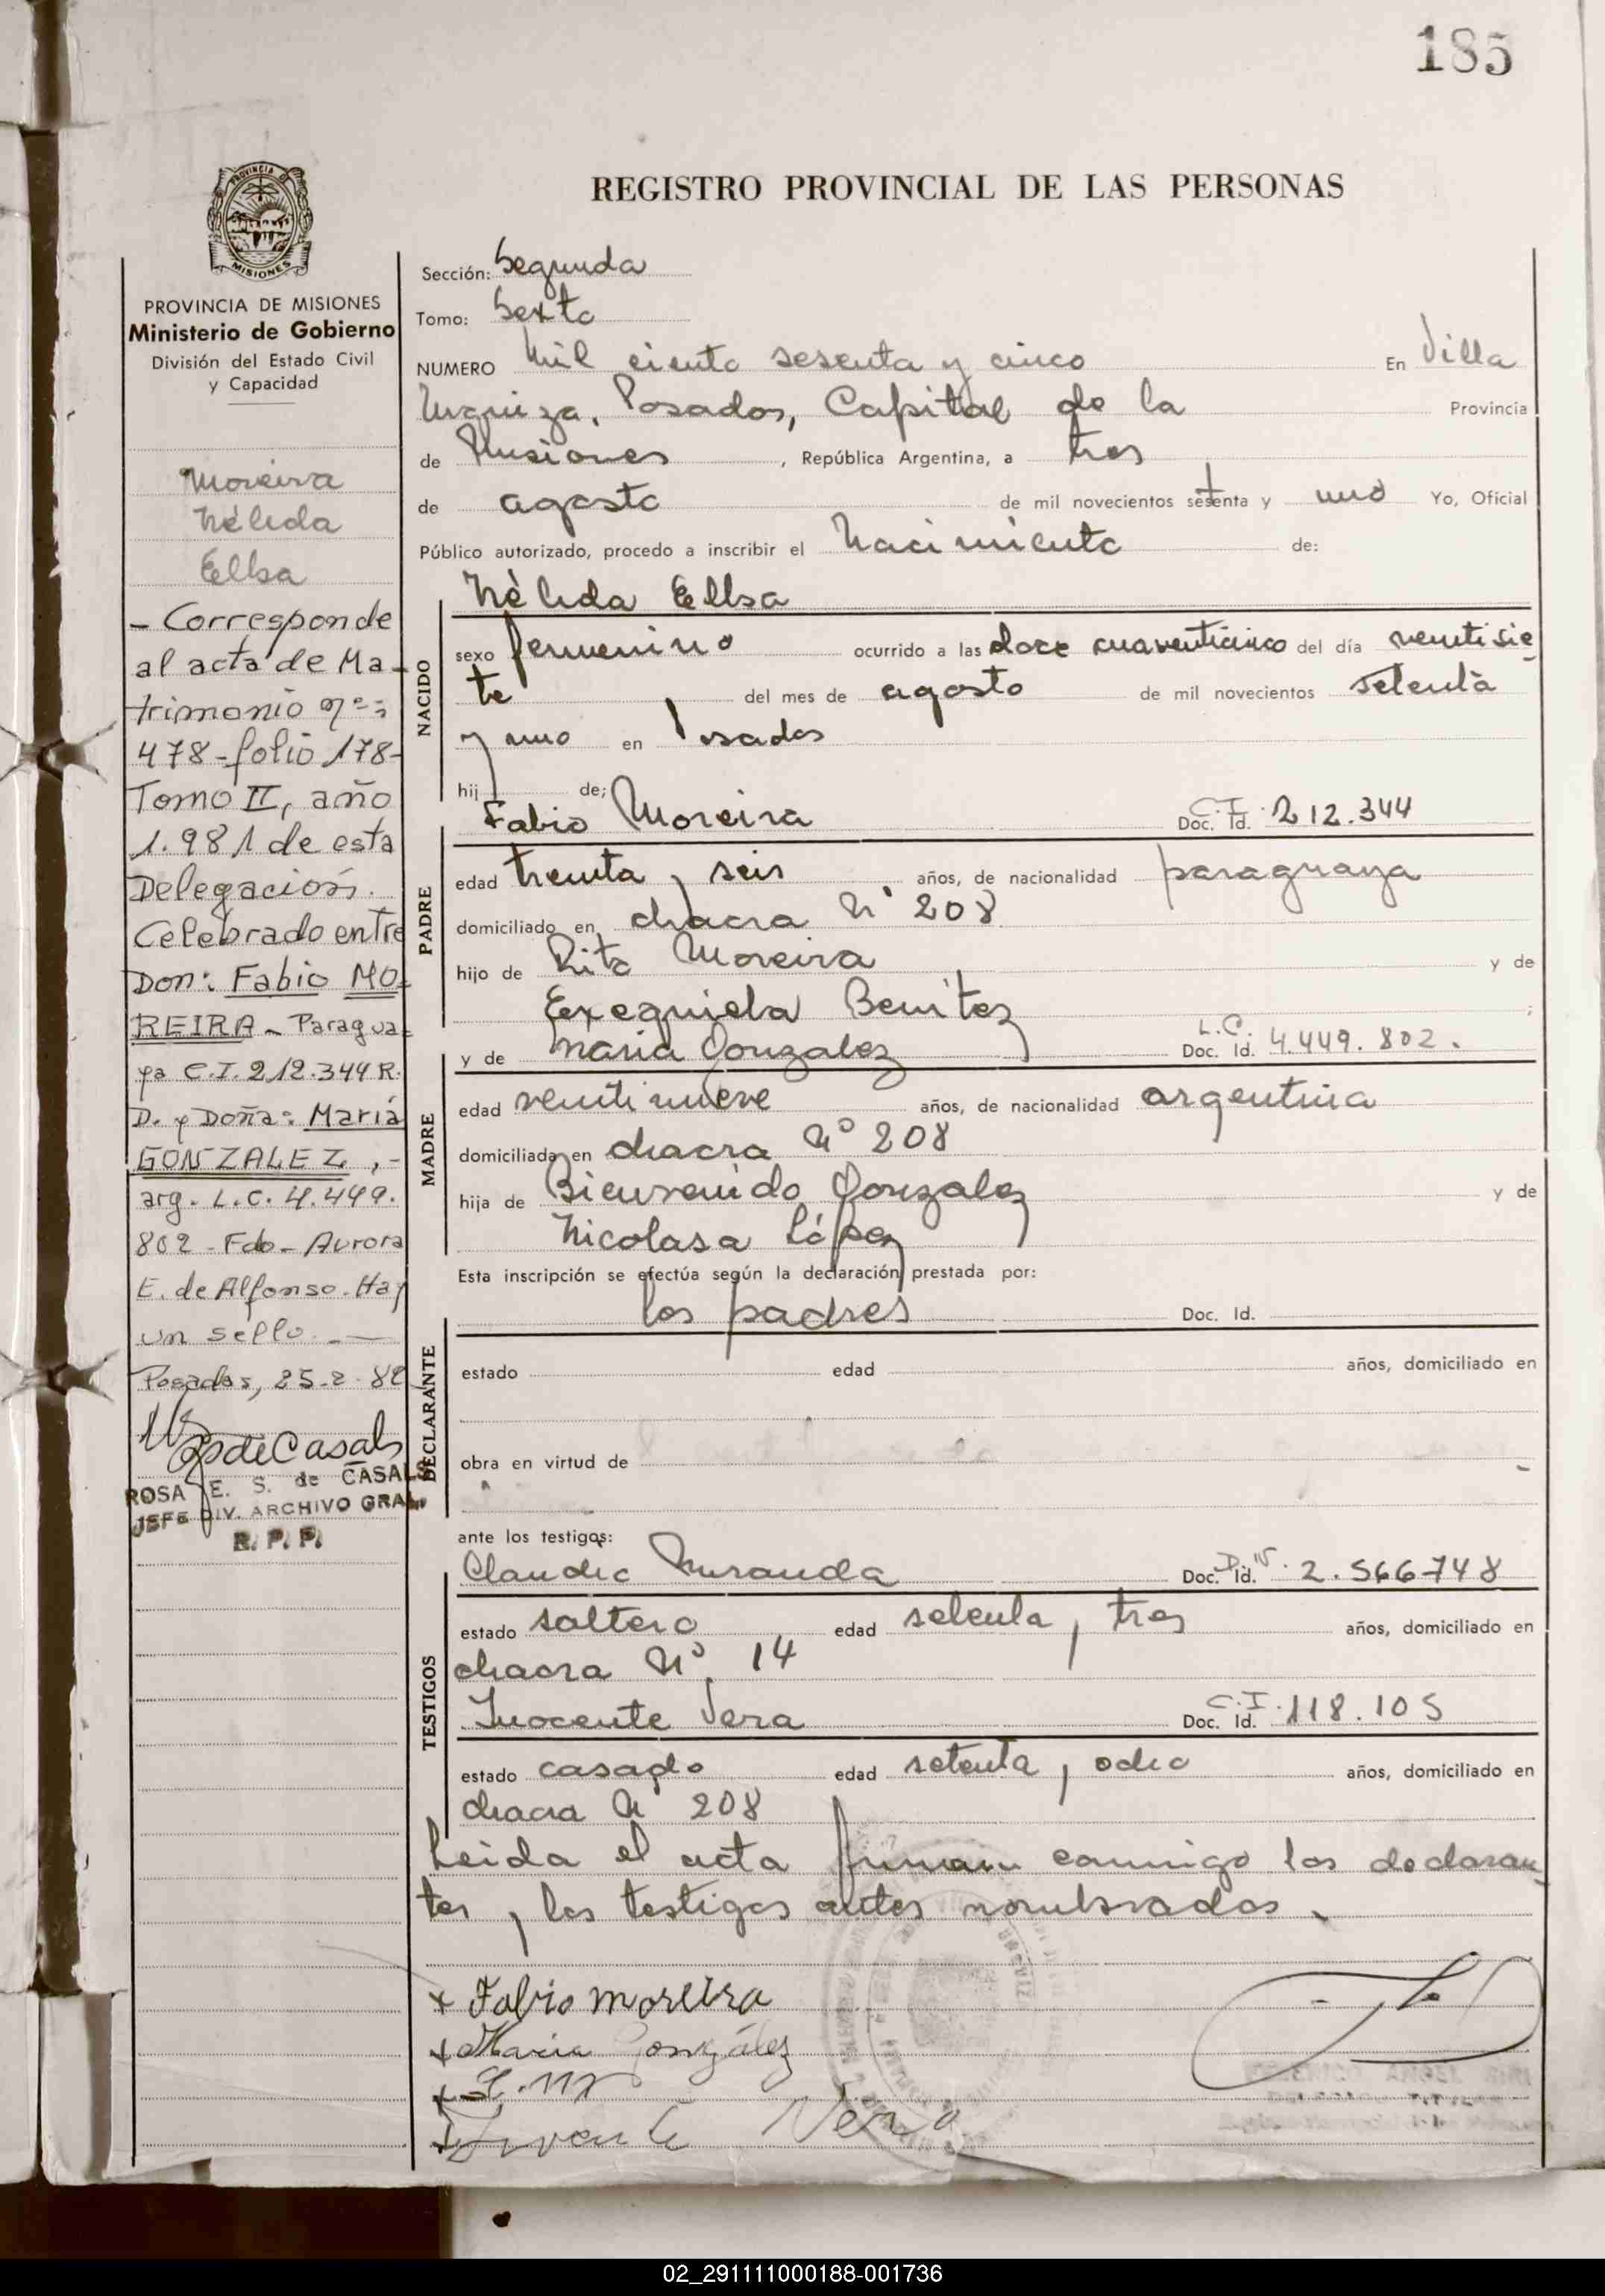 185
REGISTRO PROVINCIAL DE LAS PERSONAS
PROVINCIA DE
MISIONES
PROVINCIA DE MISIONES
Ministerio de Gobierno
División del Estado Civil
y Capacidad
Moreira
Nélida
Elba
- Corresponde
al acta de Ma-
trimonio nº:
478 - folio 178-
Tomo II, año
1.981 de esta
Delegación.
Celebrado entre
Don: Fabio MO-
REIRA - Paragua-
ya C.I. 212.344 R.
D. y Doña: María
GONZALEZ, -
arg. L.C. 4.449.
802 - Fdo - Aurora
E. de Alfonso. Hay
un sello. -
Posadas, 25-2-82
deCasals
ROSA E. S. de CASALS
JEFE DIV. ARCHIVO GRAL.
R. P. P.
Sección: Segunda
Tomo: Sexto
NUMERO Mil ciento sesenta y cinco En Villa
Urquiza, Posadas, Capital de la Provincia
de Misiones, República Argentina, a tres
de agosto de mil novecientos setenta y uno Yo, Oficial
Público autorizado, procedo a inscribir el Nacimiento de:
NACIDO
Nélida Elba
sexo femenino ocurrido a las doce cuarenticinco del día ventisie-
te del mes de agosto de mil novecientos setenta
y uno en Posadas
hij de;
PADRE
Fabio Moreira Doc. Id. C.I. 212.344
edad treinta y seis años, de nacionalidad paraguaya
domiciliado en chacra Nº 208
hijo de Rito Moreira y de
Exequiela Benitez ;
MADRE
y de Maria Gonzalez Doc. Id. L.C. 4.449.802.
edad ventinueve años, de nacionalidad argentina
domiciliada en chacra Nº 208
hija de Bienvenido Gonzalez y de
Nicolasa López
Esta inscripción se efectúa según la declaración prestada por:
DECLARANTE
los padres Doc. Id.
estado edad años, domiciliado en
obra en virtud de
ante los testigos:
TESTIGOS
Claudio Miranda Doc. Id. 2.566748
estado soltero edad setenta y tres años, domiciliado en
chacra Nº 14
Inocente Vera Doc. Id. C.I. 118.105
estado casado edad setenta y ocho años, domiciliado en
chacra Nº 208
Leida el acta firman conmigo los declaran-
tes y los testigos antes nombrados.
x Fabio moreira
x Maria González
x
x Vera
02_291111000188-001736